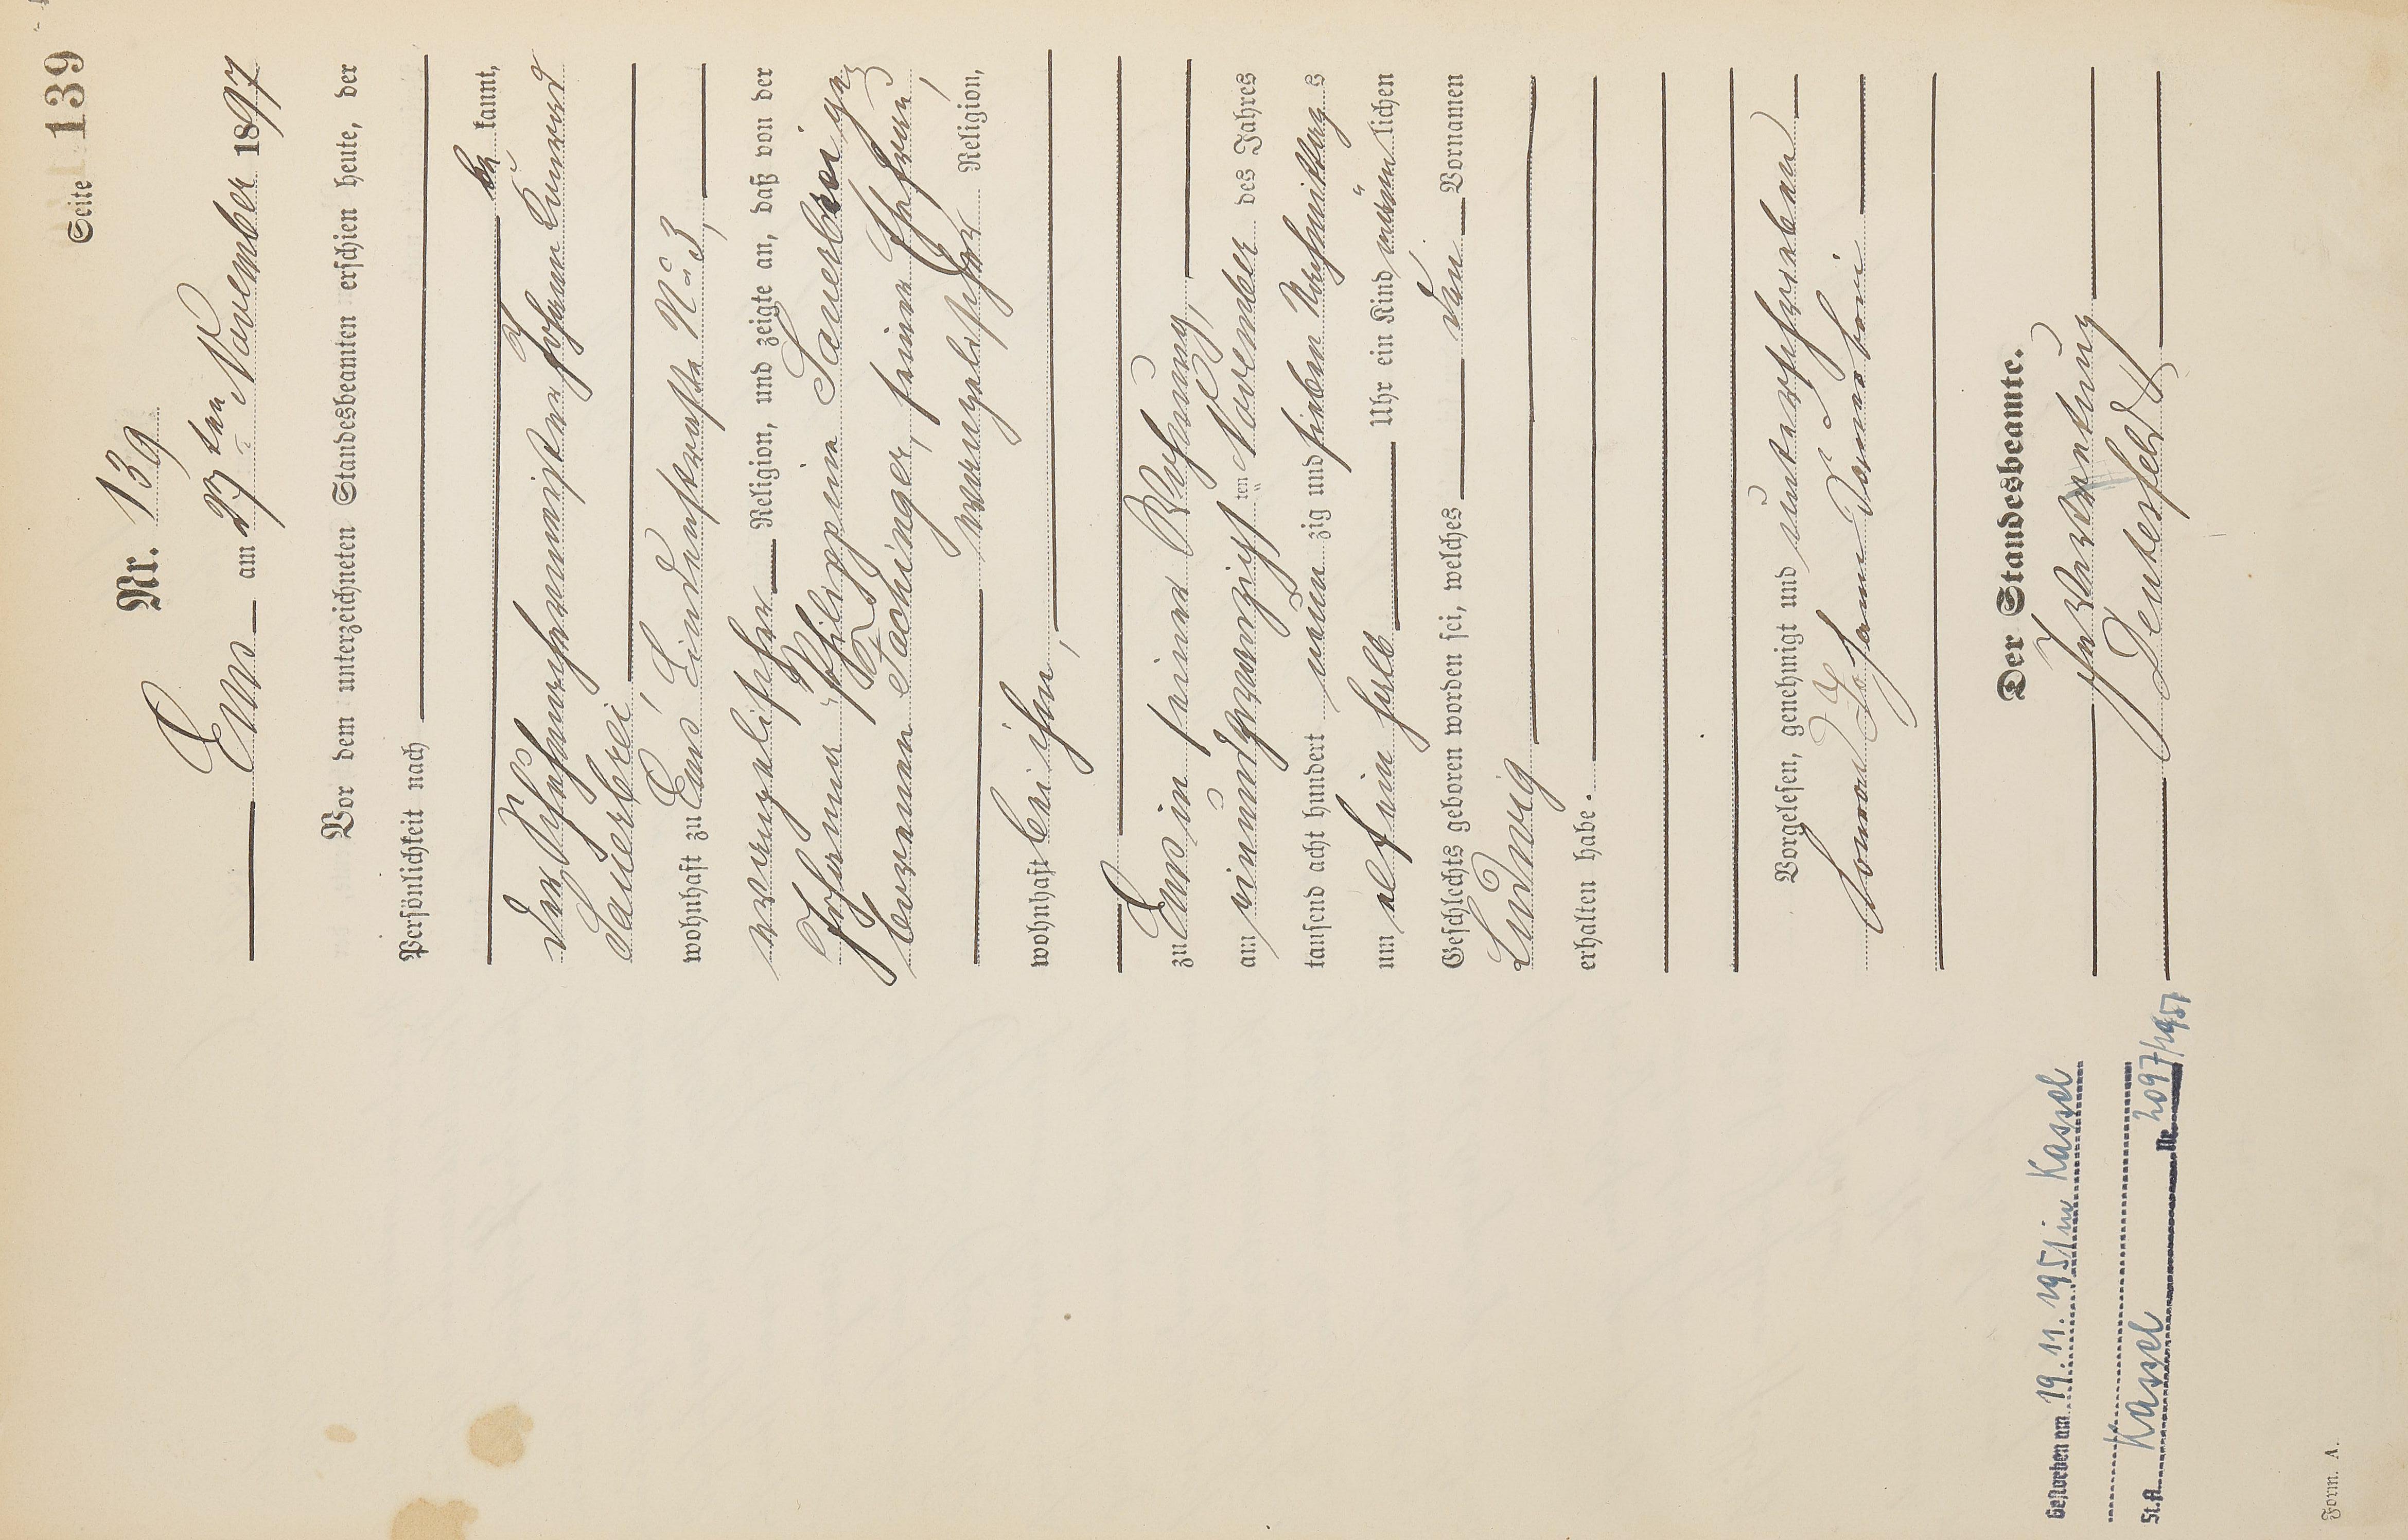 Seite 139
Nr. 139
Ems am 27ten November 1897
Vor dem unterzeichneten Standesbeamten erschien heute, der
Persönlichkeit nach
be kannt,
der Schuhmachermeister Johann Konrad
Sauerbrei
wohnhaft zu Ems, Lindenstraße No 3,
evangelischer Religion, und zeigte an, daß von der
Johanna Philippine Sauerbrei ge-
borenen Fachinger, seiner Ehefrau,
evangelischer Religion,
wohnhaft bei ihm,
zu Ems in seiner Wohnung,
am einundzwanzigsten November des Jahres
tausend acht hundert neun zig und sieben Nachmittags
um elf ein halb Uhr ein Kind männlichen
Geschlechts geboren worden sei, welches den Vornamen
Ludwig
erhalten habe.
Vorgelesen, genehmigt und unterschrieben
Konrad Johann Sauerbrei
Der Standesbeamte.
In Vertretung
Deutesfeld
Gestorben am 19.11.1951 in Kassel
St.A. Kassel Nr. 2097/1951
Form. A.